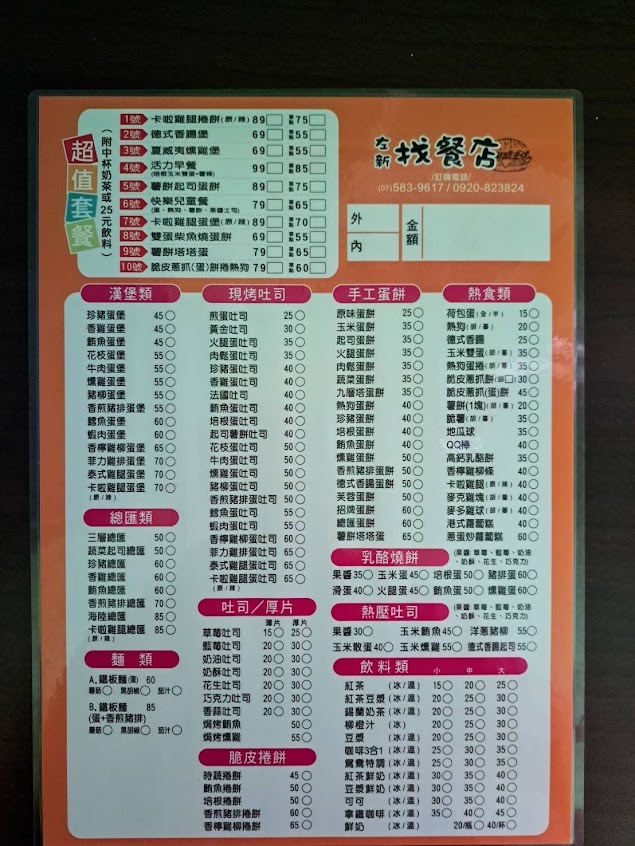 超值套餐
(附中杯奶茶或25元飲料)
1號 卡啦雞腿捲餅(原/辣) 89 單點75
2號 德式香腸堡 69 單點55
3號 夏威夷燻雞堡 69 單點55
4號 活力早餐 99 單點85
(培根玉米雙蛋+薯條)
5號 薯餅起司蛋餅 89 單點75
6號 快樂兒童餐 79 單點65
(蛋、熱狗、薯餅、果醬土司)
7號 卡啦雞腿蛋堡(原/辣) 89 單點70
8號 雙蛋柴魚燒蛋餅 69 單點55
9號 薯餅塔塔蛋 79 單點65
10號 脆皮蔥抓(蛋)餅捲熱狗 79 單點60
左新 找餐店
/訂購電話/
(07)583-9617 / 0920-823824
外
內
金額
漢堡類
珍豬蛋堡 45
香雞蛋堡 45
鮪魚蛋堡 50
花枝蛋堡 55
牛肉蛋堡 55
燻雞蛋堡 55
豬柳蛋堡 50
香煎豬排蛋堡 55
鱈魚蛋堡 60
蝦肉蛋堡 60
香檸雞柳蛋堡 65
菲力雞排蛋堡 70
泰式雞腿蛋堡 70
卡啦雞腿蛋堡 70
(原/辣)
總匯類
三層總匯 50
蔬菜起司總匯 50
珍豬總匯 60
香雞總匯 60
鮪魚總匯 60
香煎豬排總匯 70
海陸總匯 85
卡啦雞腿總匯 85
(原/辣)
麵類
A.鐵板麵(蛋) 60
蘑菇 黑胡椒 茄汁
B.鐵板麵 85
(蛋+香煎豬排)
蘑菇 黑胡椒 茄汁
現烤吐司
煎蛋吐司 25
黃金吐司 30
火腿蛋吐司 35
肉鬆蛋吐司 35
珍豬蛋吐司 40
香雞蛋吐司 40
法國吐司 40
鮪魚蛋吐司 40
培根蛋吐司 40
起司薯餅吐司 40
花枝蛋吐司 50
牛肉蛋吐司 50
燻雞蛋吐司 50
豬柳蛋吐司 50
香煎豬排蛋吐司 50
鱈魚蛋吐司 55
蝦肉蛋吐司 55
香檸雞柳蛋吐司 60
菲力雞排蛋吐司 65
泰式雞腿蛋吐司 65
卡啦雞腿蛋吐司 65
(原/辣)
吐司/厚片
薄片 厚片
草莓吐司 15 25
藍莓吐司 20 30
奶油吐司 20 30
奶酥吐司 20 30
花生吐司 20 30
巧克力吐司 20 30
香蒜吐司 20 30
焗烤鮪魚 50
焗烤燻雞 55
脆皮捲餅
時蔬捲餅 45
鮪魚捲餅 50
培根捲餅 50
香煎豬排捲餅 60
香檸雞柳捲餅 65
手工蛋餅
原味蛋餅 25
玉米蛋餅 30
起司蛋餅 35
火腿蛋餅 35
肉鬆蛋餅 35
蔬菜蛋餅 35
九層塔蛋餅 35
熱狗蛋餅 40
珍豬蛋餅 40
培根蛋餅 40
鮪魚蛋餅 40
燻雞蛋餅 50
香煎豬排蛋餅 50
德式香腸蛋餅 50
芙蓉蛋餅 50
招牌蛋餅 60
總匯蛋餅 60
薯餅塔塔蛋 60
熱食類
荷包蛋(全/半) 15
熱狗(胡/蕃) 20
德式香腸 25
玉米雙蛋(胡/蕃) 35
熱狗蛋捲(胡/蕃) 35
脆皮蔥抓餅(胡 30
脆皮蔥抓(蛋)餅 45
薯餅(1塊)(胡/蕃) 20
脆薯(胡/蕃) 35
地瓜球 35
QQ棒 40
高鈣乳酪餅 35
香檸雞柳條 40
卡啦雞腿(原/辣) 40
麥克雞塊(胡/蕃) 40
麥多雞球(胡/蕃) 40
港式蘿蔔糕 40
蔥蛋炒蘿蔔糕 60
乳酪燒餅
(果醬:草莓、藍莓、奶油、奶酥、花生、巧克力)
果醬35 玉米蛋45 培根蛋50 豬排蛋60
滑蛋40 火腿蛋45 鮪魚蛋50 燻雞蛋60
熱壓吐司
(果醬:草莓、藍莓、奶油、奶酥、花生、巧克力)
果醬30 玉米鮪魚45 洋蔥豬柳55
玉米散蛋40 玉米燻雞55 德式香腸起司55
飲料類 小 中 大
紅茶 (冰/溫) 15 20 25
紅茶豆漿 (冰/溫) 20 25 30
錫蘭奶茶 (冰/溫) 20 25 30
柳橙汁 (冰) 20 25 30
豆漿 (冰/溫) 20 25 30
咖啡3合1 (冰/溫) 25 30 35
鴛鴦特調 (冰/溫) 25 30 35
紅茶鮮奶 (冰/溫) 30 35 40
豆漿鮮奶 (冰/溫) 30 35 40
可可 (冰/溫) 30 35 40
拿鐵咖啡 (冰/溫) 35 40 45
鮮奶 (冰/溫) 20/瓶 40/杯